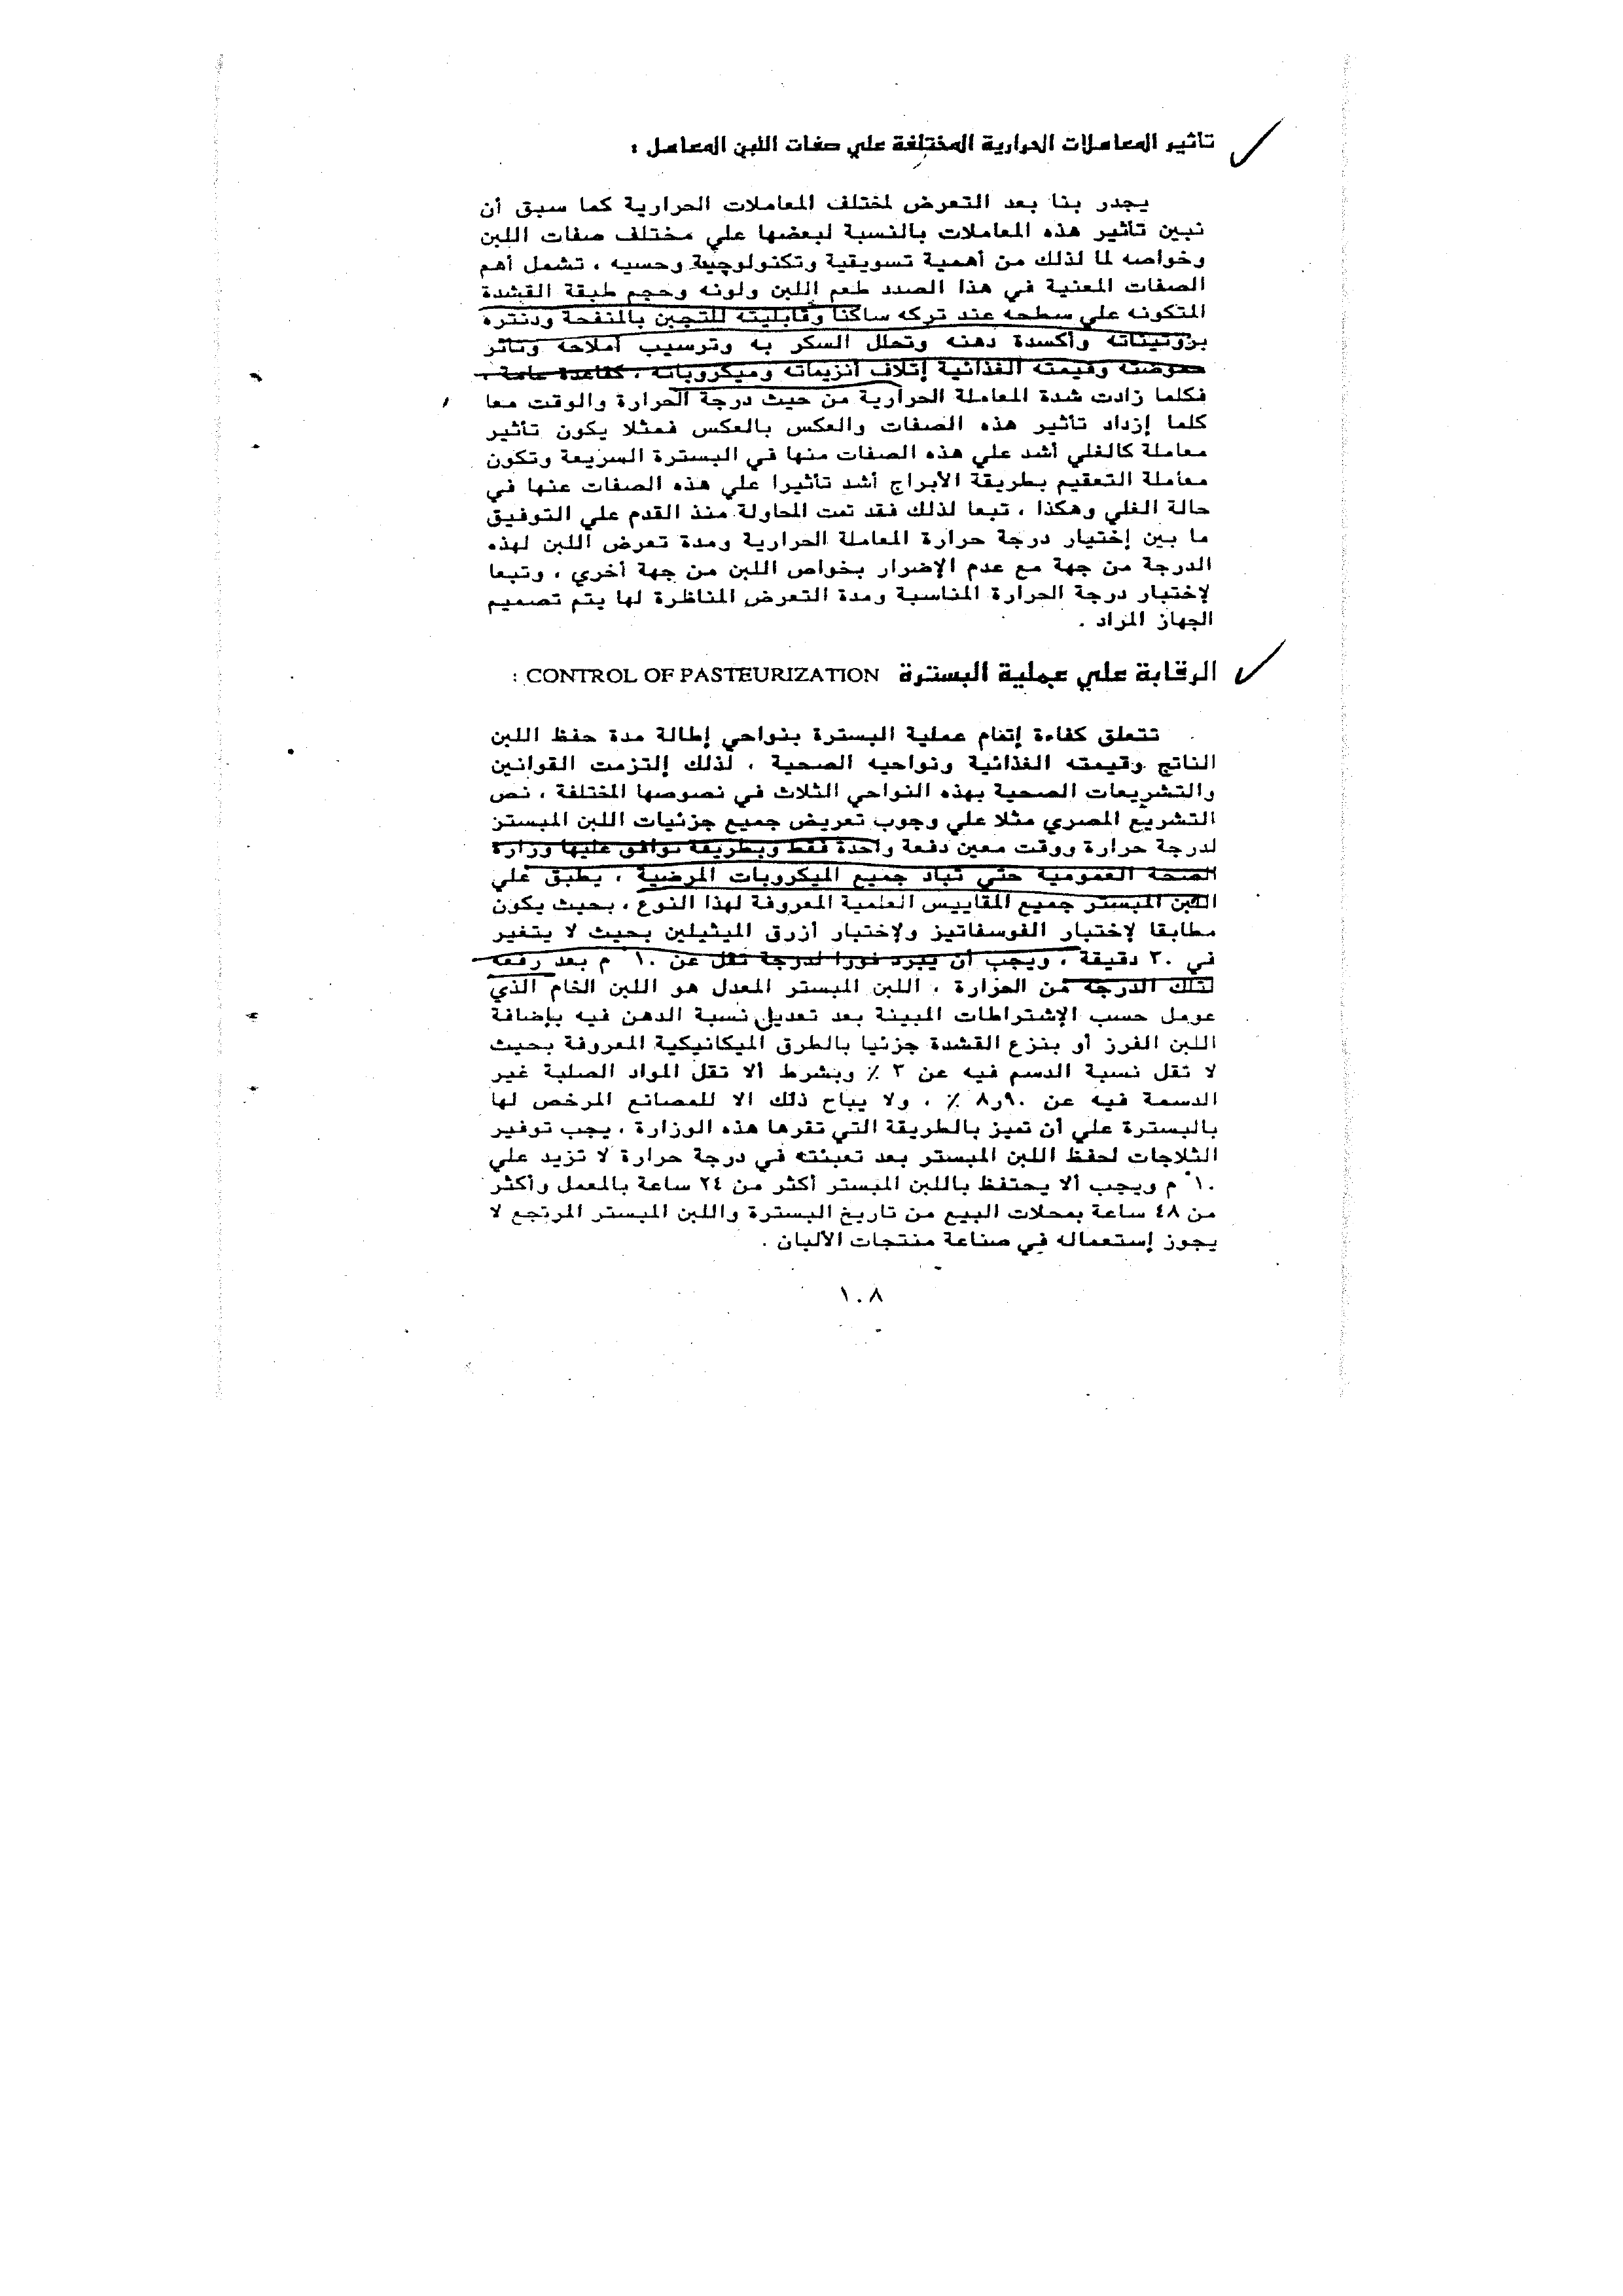 تاثير المعاملات الحرارية المختلفة علي صفات اللبن المعامل :
يجدر بنا بعد التعرض لمختلف المعاملات الحرارية كما سبق أن
نبين تأثير هذه المعاملات بالنسبة لبعضها علي مختلف صفات اللبن
وخواصه لما لذلك من أهمية تسويقية وتكنولوجية وحسيه ، تشمل أهم
الصفات المعنية في هذا الصدد طعم اللبن ولونه وحجم طبقة القشدة
المتكونه علي سطحه عند تركه ساكنا وقابليته للتجبن بالمنفحة ودنتره
بروتيناته وأكسدة دهنه وتحلل السكر به وترسيب أملاحه وتأثر
حموضته وقيمته الغذائية إتلاف أنزيماته وميكروباته ، كقاعدة عامة ،
فكلما زادت شدة المعاملة الحرارية من حيث درجة الحرارة والوقت معا
كلما إزداد تأثير هذه الصفات والعكس بالعكس فمثلا يكون تأثير
معاملة كالغلي أشد علي هذه الصفات منها في البسترة السريعة وتكون
معاملة التعقيم بطريقة الأبراج أشد تأثيرا علي هذه الصفات عنها في
حالة الغلي وهكذا ، تبعا لذلك فقد تمت المحاولة منذ القدم علي التوفيق
ما بين إختيار درجة حرارة المعاملة الحرارية ومدة تعرض اللبن لهذه
الدرجة من جهة مع عدم الإضرار بخواص اللبن من جهة أخري ، وتبعا
لإختبار درجة الحرارة المناسبة ومدة التعرض المناظرة لها يتم تصميم
الجهاز المراد .
الرقابة علي عملية البسترة CONTROL OF PASTEURIZATION :
تتعلق كفاءة إتمام عملية البسترة بنواحي إطالة مدة حفظ اللبن
الناتج وقيمته الغذائية ونواحيه الصحية ، لذلك إلتزمت القوانين
والتشريعات الصحية بهذه النواحي الثلاث في نصوصها المختلفة ، نص
التشريع المصري مثلا علي وجوب تعريض جميع جزئيات اللبن المبستر
لدرجة حرارة ووقت معين دفعة واحدة فقط وبطريقة توافق عليها وزارة
الصحة العمومية حتي تباد جميع الميكروبات المرضية ، يطبق علي
اللبن المبستر جميع المقاييس العلمية المعروفة لهذا النوع ، بحيث يكون
مطابقا لإختبار الفوسفاتيز ولإختبار أزرق الميثيلين بحيث لا يتغير
في ٣٠ دقيقة ، ويجب أن يبرد فورا لدرجة تقل عن ١٠° م بعد رفعه
لتلك الدرجة من الحرارة ، اللبن المبستر المعدل هو اللبن الخام الذي
عومل حسب الإشتراطات المبينة بعد تعديل نسبة الدهن فيه بإضافة
اللبن الفرز أو بنزع القشدة جزئيا بالطرق الميكانيكية المعروفة بحيث
لا تقل نسبة الدسم فيه عن ٣ ٪ وبشرط ألا تقل المواد الصلبة غير
الدسمة فيه عن ٩٠ر٨ ٪ ، ولا يباح ذلك الا للمصانع المرخص لها
بالبسترة علي أن تميز بالطريقة التي تقرها هذه الوزارة ، يجب توفير
الثلاجات لحفظ اللبن المبستر بعد تعبئته في درجة حرارة لا تزيد علي
١٠° م ويجب ألا يحتفظ باللبن المبستر أكثر من ٢٤ ساعة بالمعمل وأكثر
من ٤٨ ساعة بمحلات البيع من تاريخ البسترة واللبن المبستر المرتجع لا
يجوز إستعماله في صناعة منتجات الألبان .
١٠٨